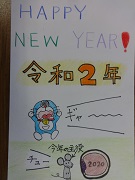 HAPPY
NEW YEAR!
令和2年
ぶ
ひゃ
今年の主役
チュー
2020